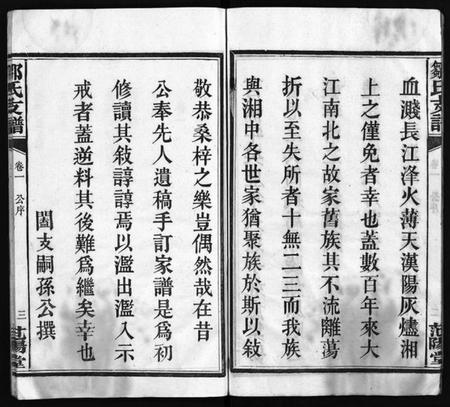 鄒氏支譜
卷一
公序
二
范陽堂
血濺長江洚火薄天漢陽灰燼湘
上之僅免者幸也蓋數百年來大
江南北之故家舊族其不流離蕩
折以至失所者十無二三而我族
與湘中各世家猶聚族於斯以敍
敬恭桑梓之樂豈偶然哉在昔
公奉先人遺稿手訂家譜是爲初
修讀其敍諄諄焉以濫出濫入示
戒者蓋逆料其後難爲繼矣幸也
闔支嗣孫公撰
鄒氏支譜
卷一
公序
三
范陽堂